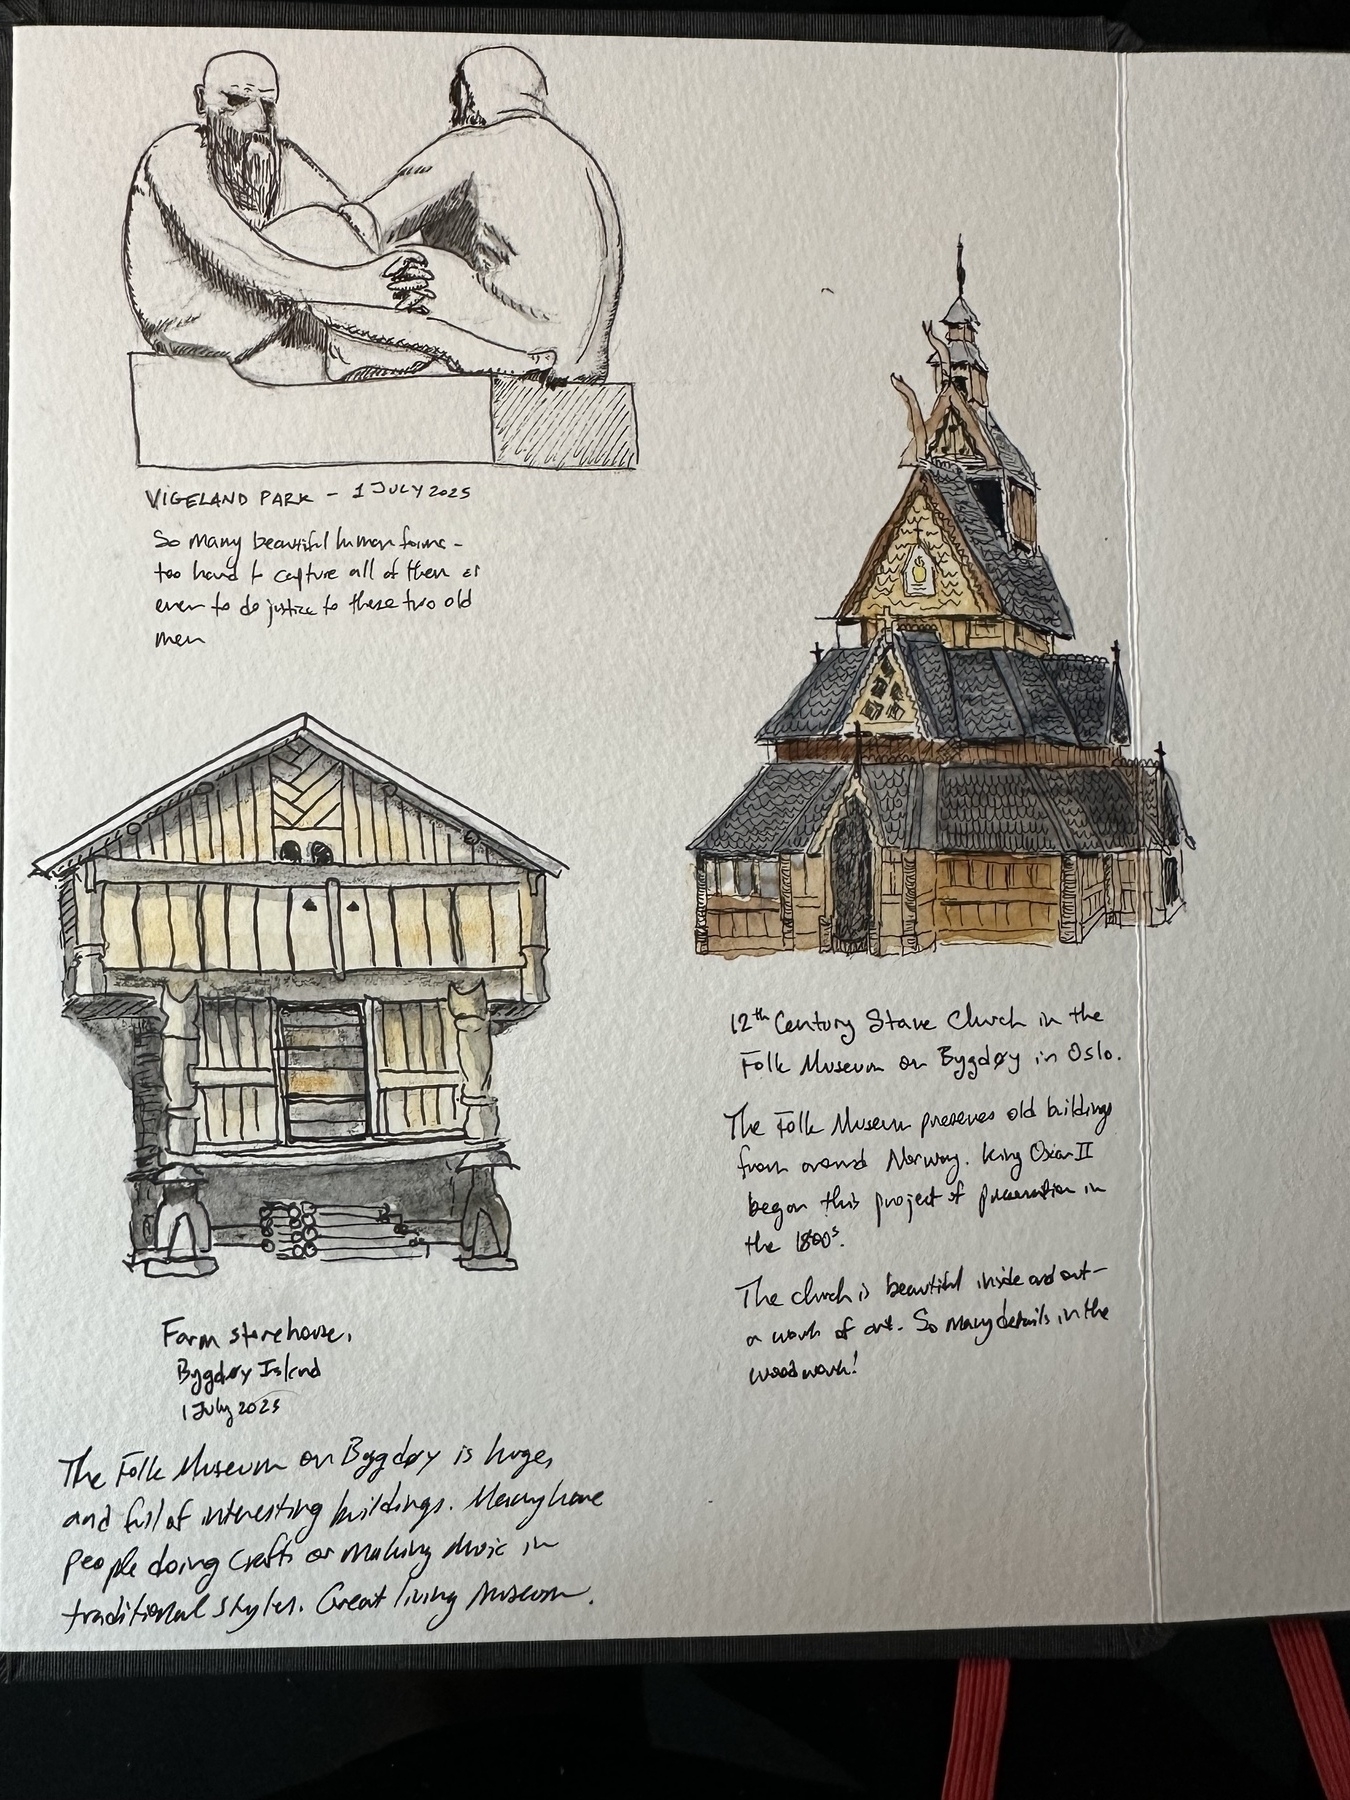 VIGELAND PARK - 1 JULY 2025
So many beautiful human forms -
too hard to capture all of them or
even to do justice to these two old
men
Farm storehouse,
Bygdøy Island
1 July 2025
The Folk Museum on Bygdøy is huge,
and full of interesting buildings. Many have
people doing crafts or making music in
traditional styles. Great living museum.
12th Century Stave Church in the
Folk Museum on Bygdøy in Oslo.
The Folk Museum preserves old buildings
from around Norway. King Oscar II
began this project of preservation in
the 1800s.
The church is beautiful inside and out-
a work of art. So many details in the
woodwork!